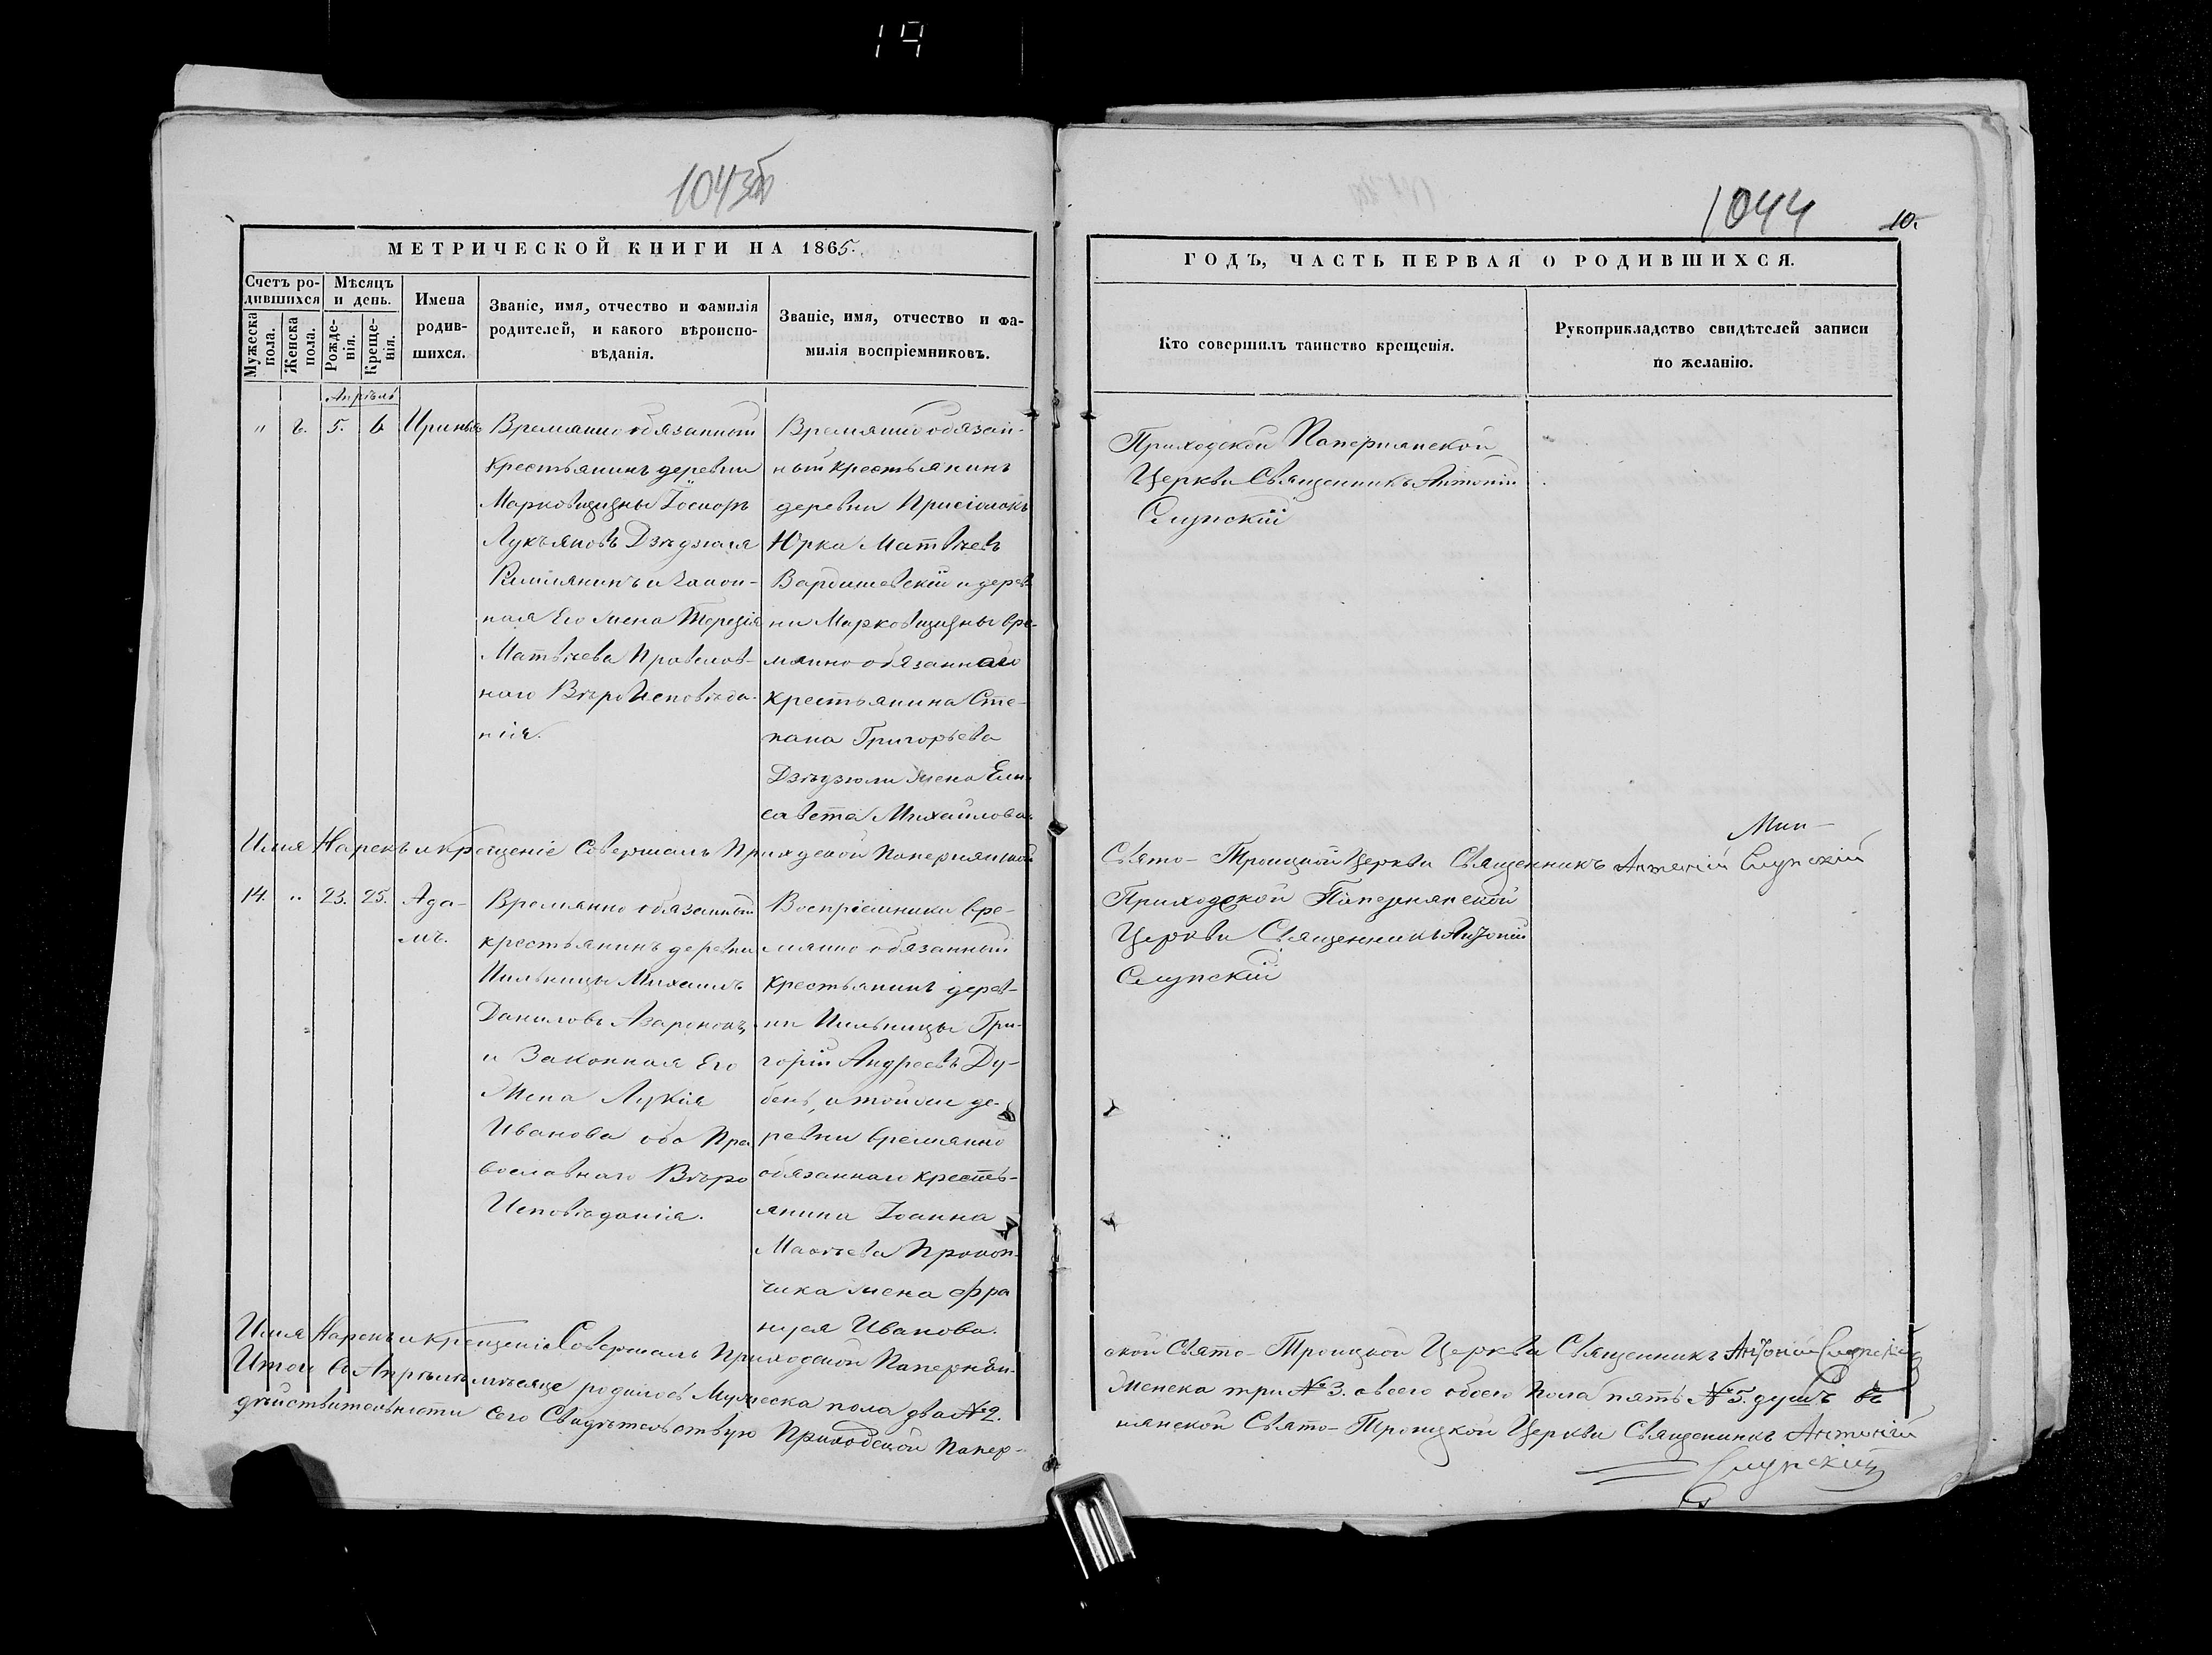 19
1043об
1044
10.
МЕТРИЧЕСКОЙ КНИГИ НА 1865.
ГОДЪ, ЧАСТЬ ПЕРВАЯ О РОДИВШИХСЯ.
Счетъ родившихся
Мужеска пола.
Женска пола.
Мѣсяцъ и день.
Рожденія.
Крещенія.
Имена родившихся.
Званіе, имя, отчество и фамилія
родителей, и какого вѣроиспо-
вѣданія.
Званіе, имя, отчество и фа-
милія воспріемниковъ.
Кто совершилъ таинство крещенія.
Рукоприкладство свидѣтелей записи
по желанію.
Апрѣль
" 2. 5. 6 Ириньѧ
Времянно обязанный
крестьянинъ деревни
Марковщизны Іосифъ
Лукъяновъ Дзѣдзюля
Римлянинъ и закон-
ная Его жена Терезія
Матвѣева Православ-
наго ВѣроИсповѣда-
нія.
Времянно обязан-
ный крестьянинъ
деревни Присіолокъ
Юрка Матвѣевъ
Вардишевскій и дерев
ни Марковщизны вре-
мянно обязаннаго
крестьянина Сте-
пана Григорьева
Дзѣдзюли жена Ели-
савета Михайлова.
Приходской Папернянской
Церкви Священникъ Антоній
Слупскій
Имя Нарекъ и крещеніе Совершалъ Приходской Папернянской
Свято-Троицкой Церкви Священникъ Антоній Слупскій
14. " 23. 25. Ада-
мъ.
Времянно обязанный
крестьянинъ деревни
Ильницы Михаилъ
Даниловъ Азаренокъ
и Законная Его
Жена Лукія
Иванова оба Пра
вославнаго Вѣро
Исповѣданія.
Воспріемники вре-
мянно обязанный
крестьянинъ дерев-
ни Ильницы Гри-
горій Андреевъ Ду-
бень, и тойже де-
ревни времянно
обязаннаго кресть-
янина Іоанна
Прокоп-
чика жена Фра
нуся Иванова.
Приходской Папернянской
Церкви Священникъ Антоній
Слупскій
Имя Нарекъ и крещеніе Совершалъ Приходской Папернян-
ской Свято-Троицкой Церкви Священникъ Антоній Слупскій
Итого въ Апрѣлѣ мѣсяце родилось Мужеска пола два №2.
Женска три №3. а всего обоего Пола пять №5. душъ въ
дѣйствительности сего Свидѣтельствую Приходской Папер-
нянской Свято-Троицкой Церкви Священникъ Антоній
Слупскій